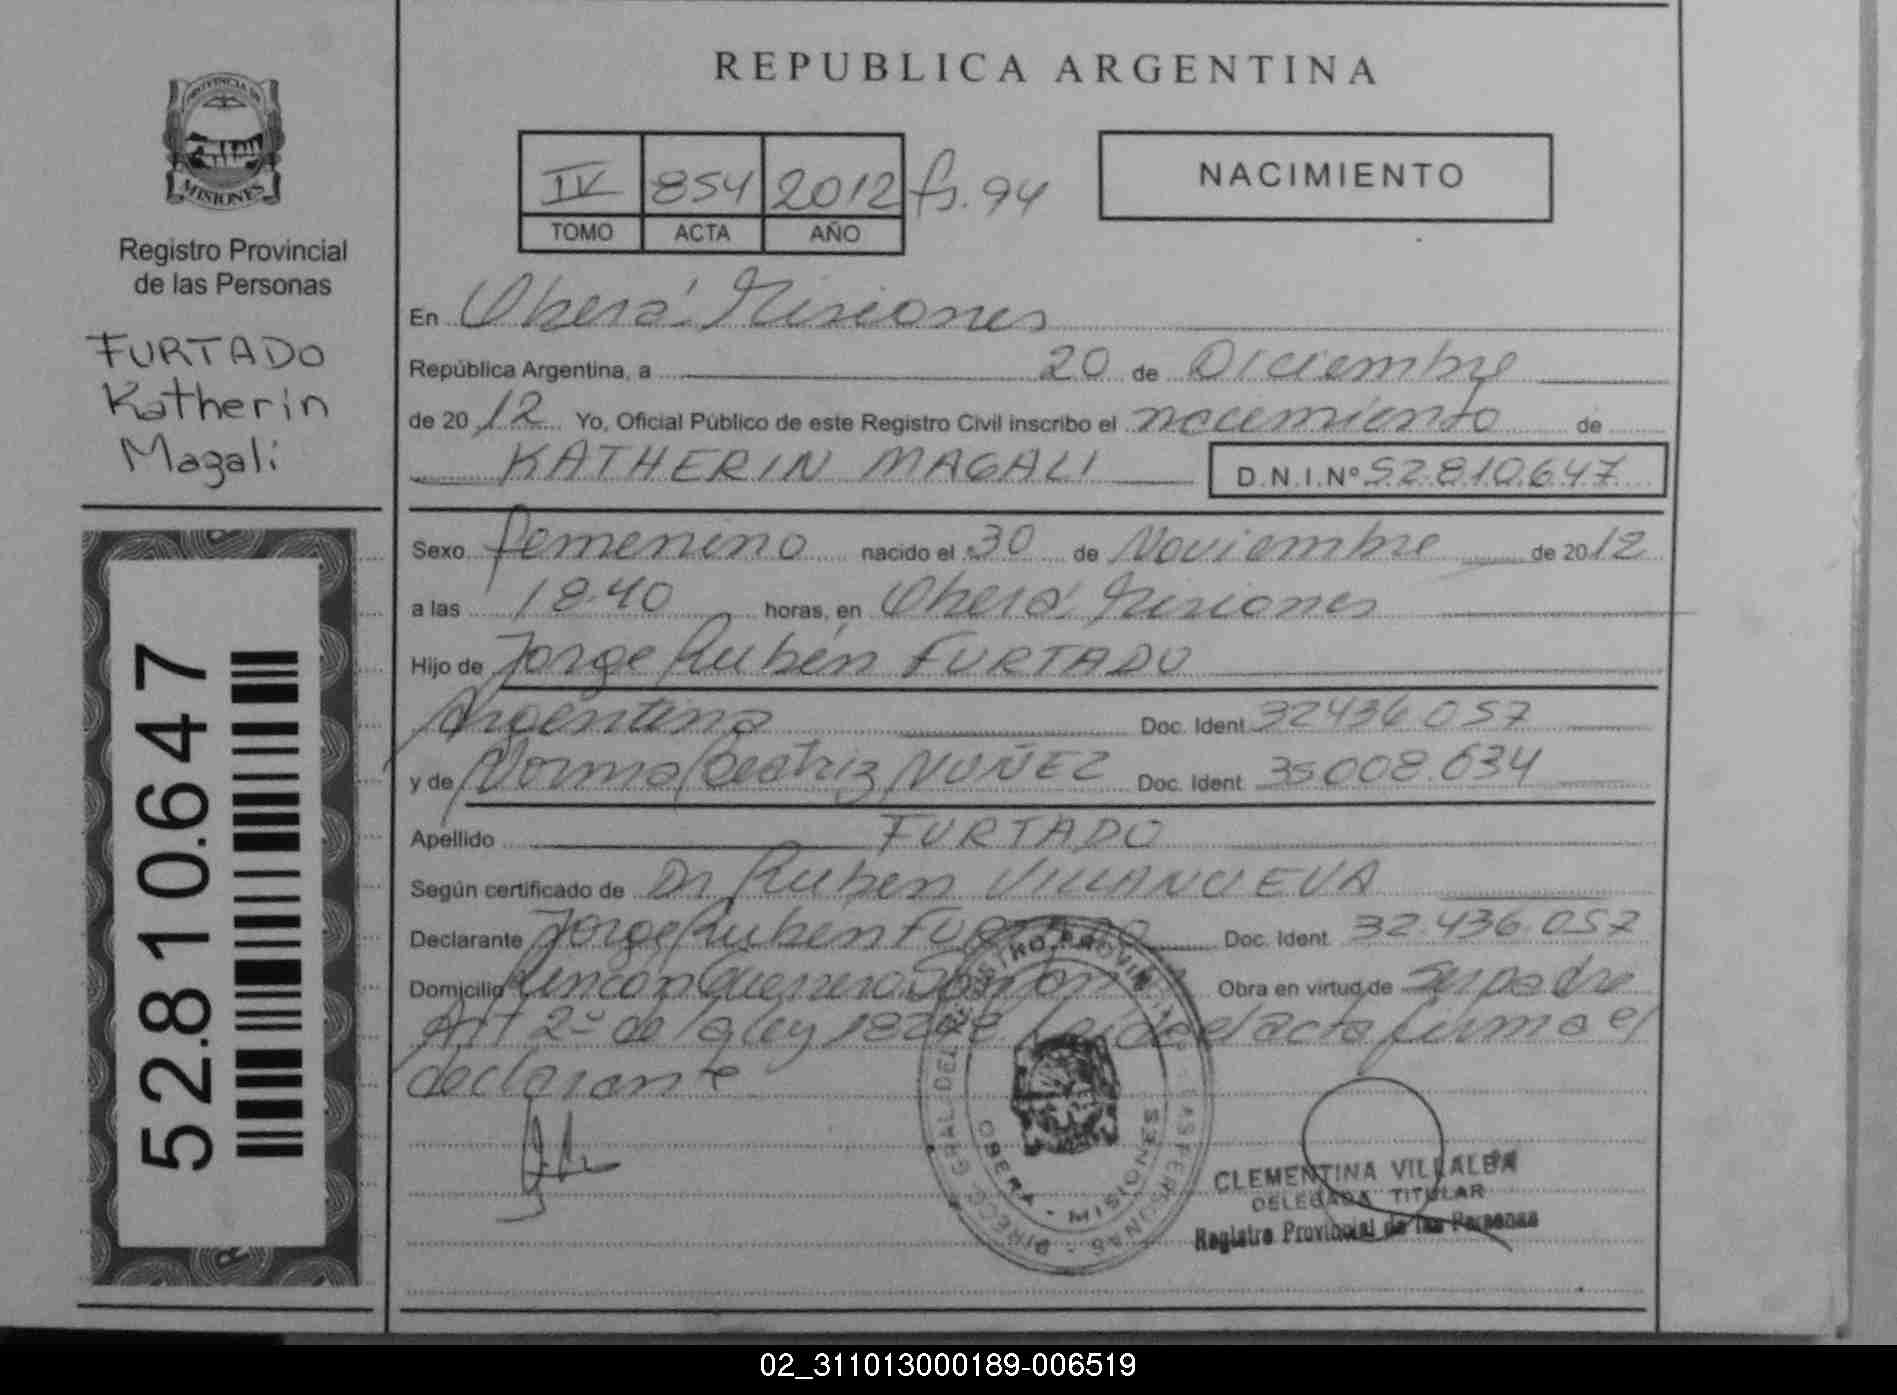 REPUBLICA ARGENTINA
PROVINCIA DE
MISIONES
Registro Provincial
de las Personas
FURTADO
Katherin
Magali
IV 854 2012 fs. 94
TOMO ACTA AÑO
NACIMIENTO
En Oberá Misiones
República Argentina, a 20 de Diciembre
de 2012 Yo, Oficial Público de este Registro Civil inscribo el nacimiento de
KATHERIN MAGALI D.N.I.Nº 52.810.647
Sexo femenino nacido el 30 de Noviembre de 2012
a las 18.40 horas, en Oberá Misiones
Hijo de Jorge Rubén FURTADO
Argentina Doc. Ident 32436.057
y de Norma Beatriz NUÑEZ Doc. Ident 35008.634
Apellido FURTADO
Según certificado de Dr Ruben VILLANUEVA
Declarante Jorge Rubén FURTADO Doc. Ident. 32.436.057
Domicilio Rincon Guerrero Obra en virtud de ser padre
Art 2º de la ley 18248 Leida el acta firma el
declarante
52.810.647
DIRECC. GRAL. DEL REGISTRO PROVINCIAL DE LAS PERSONAS
OBERA - MISIONES
CLEMENTINA VILLALBA
DELEGADA TITULAR
Registro Provincial de las Personas
02_311013000189-006519